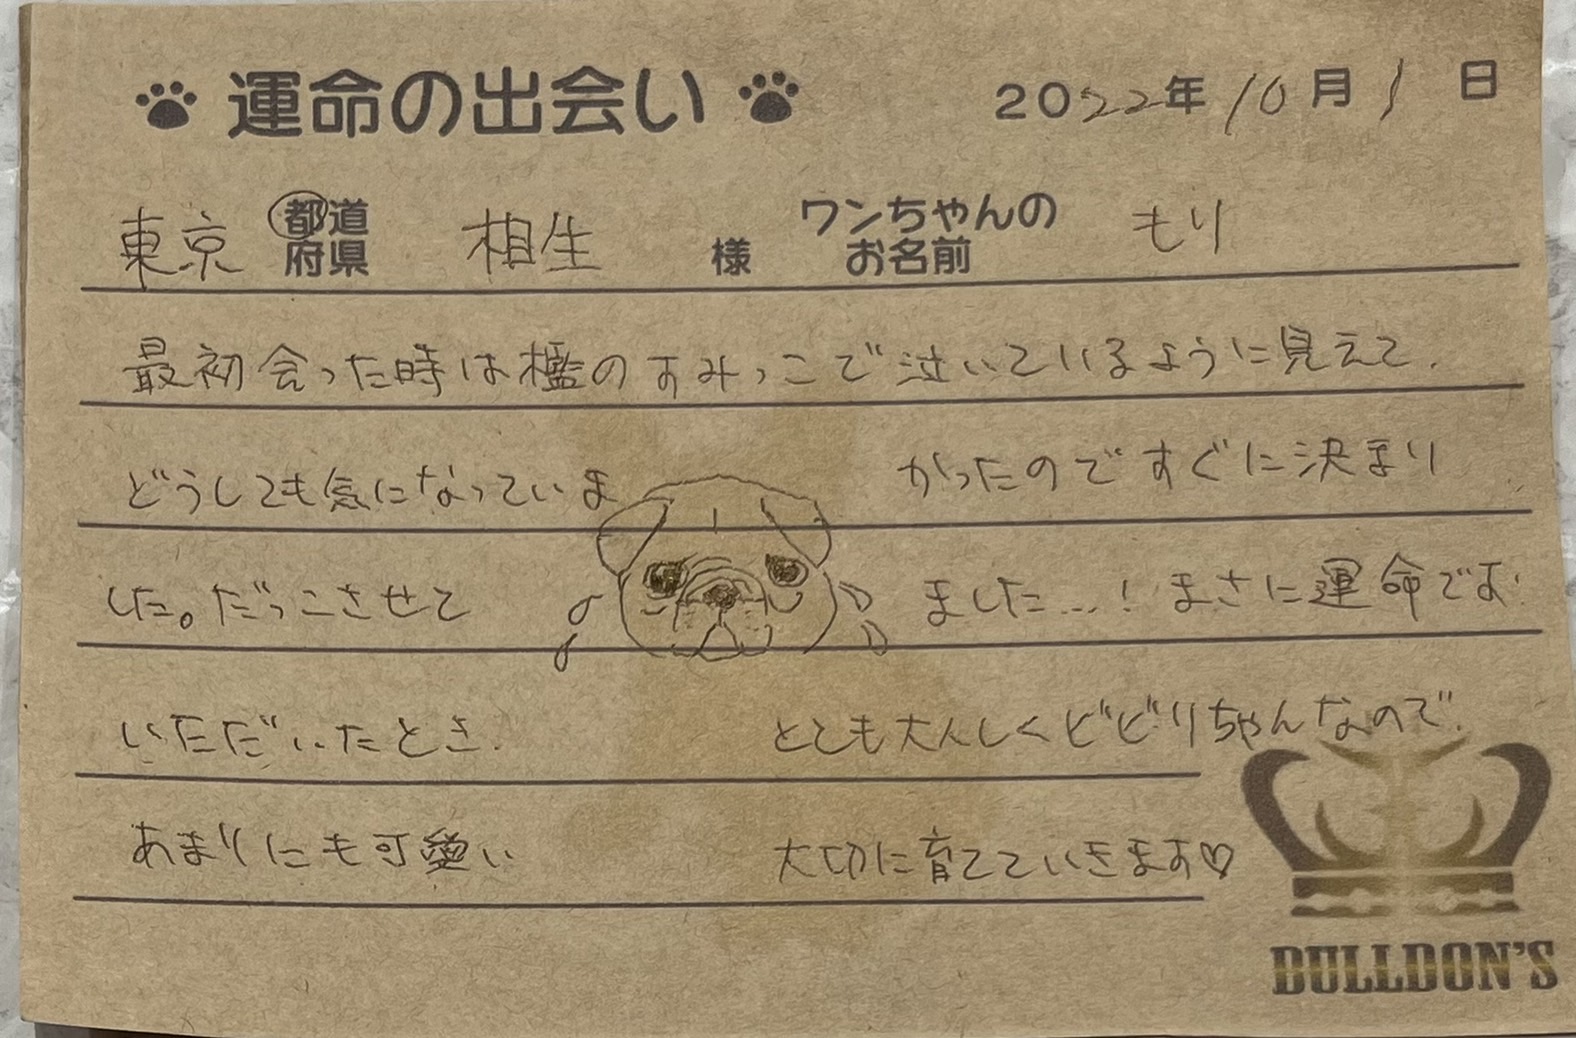 運命の出会い 2022年10月1日
東京 都道府県 相生 様 ワンちゃんのお名前 もり
最初会った時は檻のすみっこで泣いているように見えて、
どうしても気になっていま
した。だっこさせて
いただいたとき、
あまりにも可愛い
かったのですぐに決まり
ました…！まさに運命です！
とても大人しくビビりちゃんなので、
大切に育てていきます♡
BULLDON'S